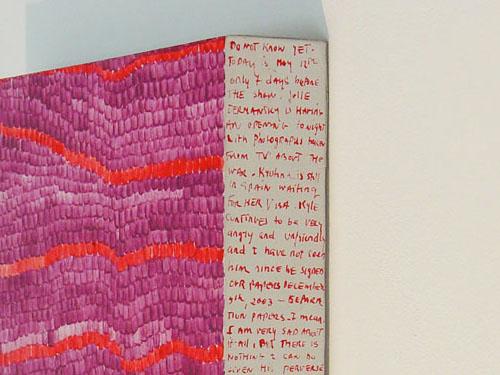 DO NOT KNOW YET.
TODAY IS MAY 12TH
only 7 days before
THE SHOW. JOLIE
IS HAVING
AN OPENING TONIGHT
WITH PHOTOGRAPHS TAKEN
FROM TV ABOUT THE
WAR. IS STILL
IN SPAIN WAITING
FOR HER VISA. KYLE
CONTINUES to be VERY
angry and unfriendly
and I have not seen
HIM SINCE HE SIGNED
OUR PAPERS DECEMBER
9th, 2003 - SEPARA
TION PAPERS - I mean.
I AM VERY SAD ABOUT
it all, BUT THERE IS
NOTHING I CAN DO
GIVEN HIS PERVERSE